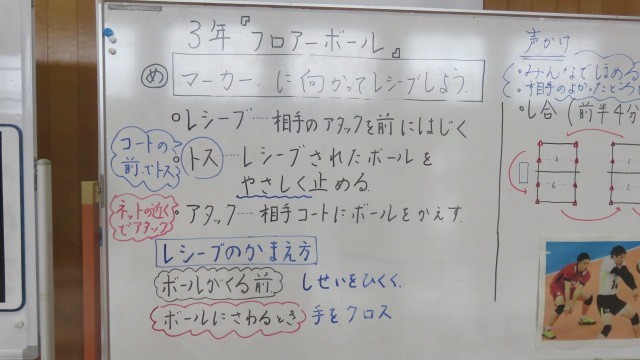 3年『フロアーボール』
め マーカーに向かってレシーブしよう.
・レシーブ…相手のアタックを前にはじく
コートの前でトス
・トス…レシーブされたボールを
やさしく止める.
ネットの近くでアタック
・アタック…相手コートにボールをかえす.
レシーブのかまえ方
ボールがくる前 しせいをひくく.
ボールにさわるとき 手をクロス
声かけ
・みんなでほめる
・相手のよかったところ
(前半4分